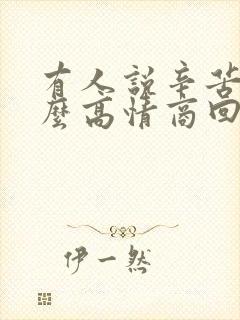 有人說辛苦
麼高情商回
伊一然